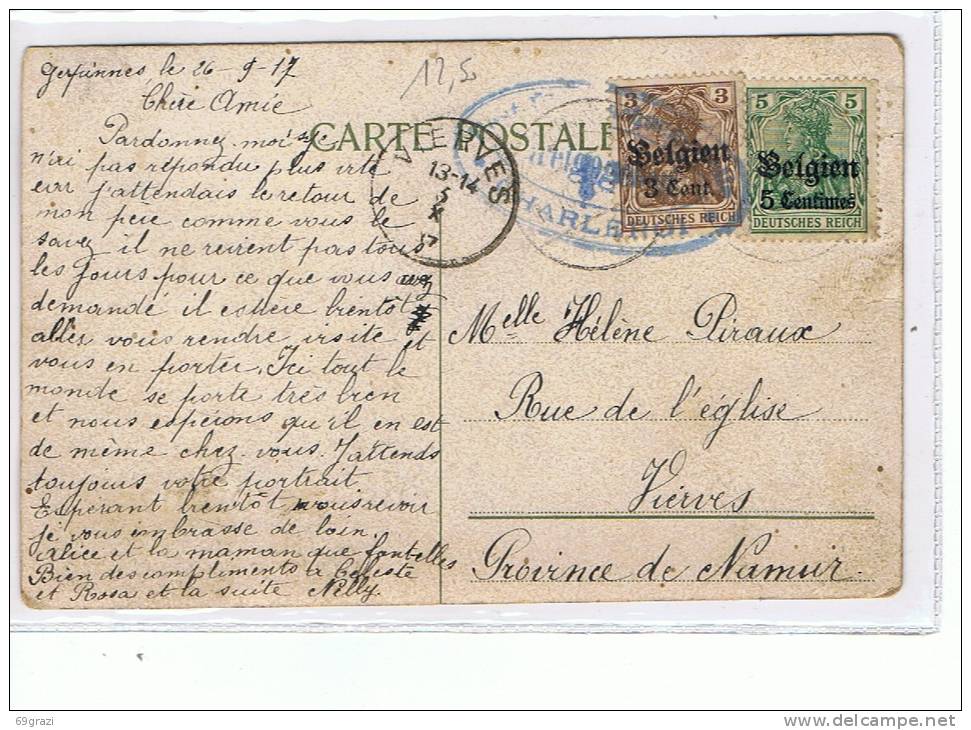 Gerpinnes, le 26-9-17
12,5
Chère Amie
Pardonnez-moi si je
n'ai pas répondu plus vite
car j'attendais le retour de
mon père comme vous le
savez il ne revient pas tous
les jours pour ce que vous avez
demandé il espère bientôt
aller vous rendre visite et
vous en porter. Ici tout le
monde se porte très bien
et nous espérons qu'il en est
de même chez vous. J'attends
toujours votre portrait
Espérant bientôt vous revoir
je vous embrasse de loin.
Alice et la maman que font elles
Bien des compliments à Celeste
et Rosa et la suite Nelly.
CARTE POSTALE
VIERVES
13-14
5
X
17
CHARLEROI
3 3
Belgien
3 Cent.
DEUTSCHES REICH
5 5
Belgien
5 Centimes
DEUTSCHES REICH
Melle Hélène Piraux
Rue de l'église
Vierves
Province de Namur.
69grazi
www.delcampe.net